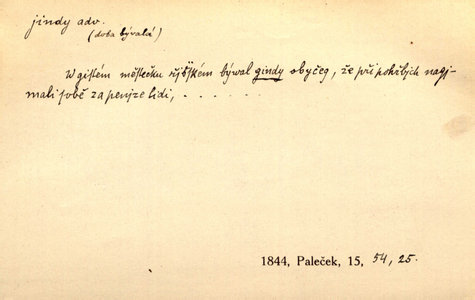 jindy adv.
(doba bývalá)
W gistém městečku řjšském býwal gindy obyčeg, že při pohřbých nagj-
mali sobě za penjze lidi, . . . . . . .
1844, Paleček, 15, 54, 25.